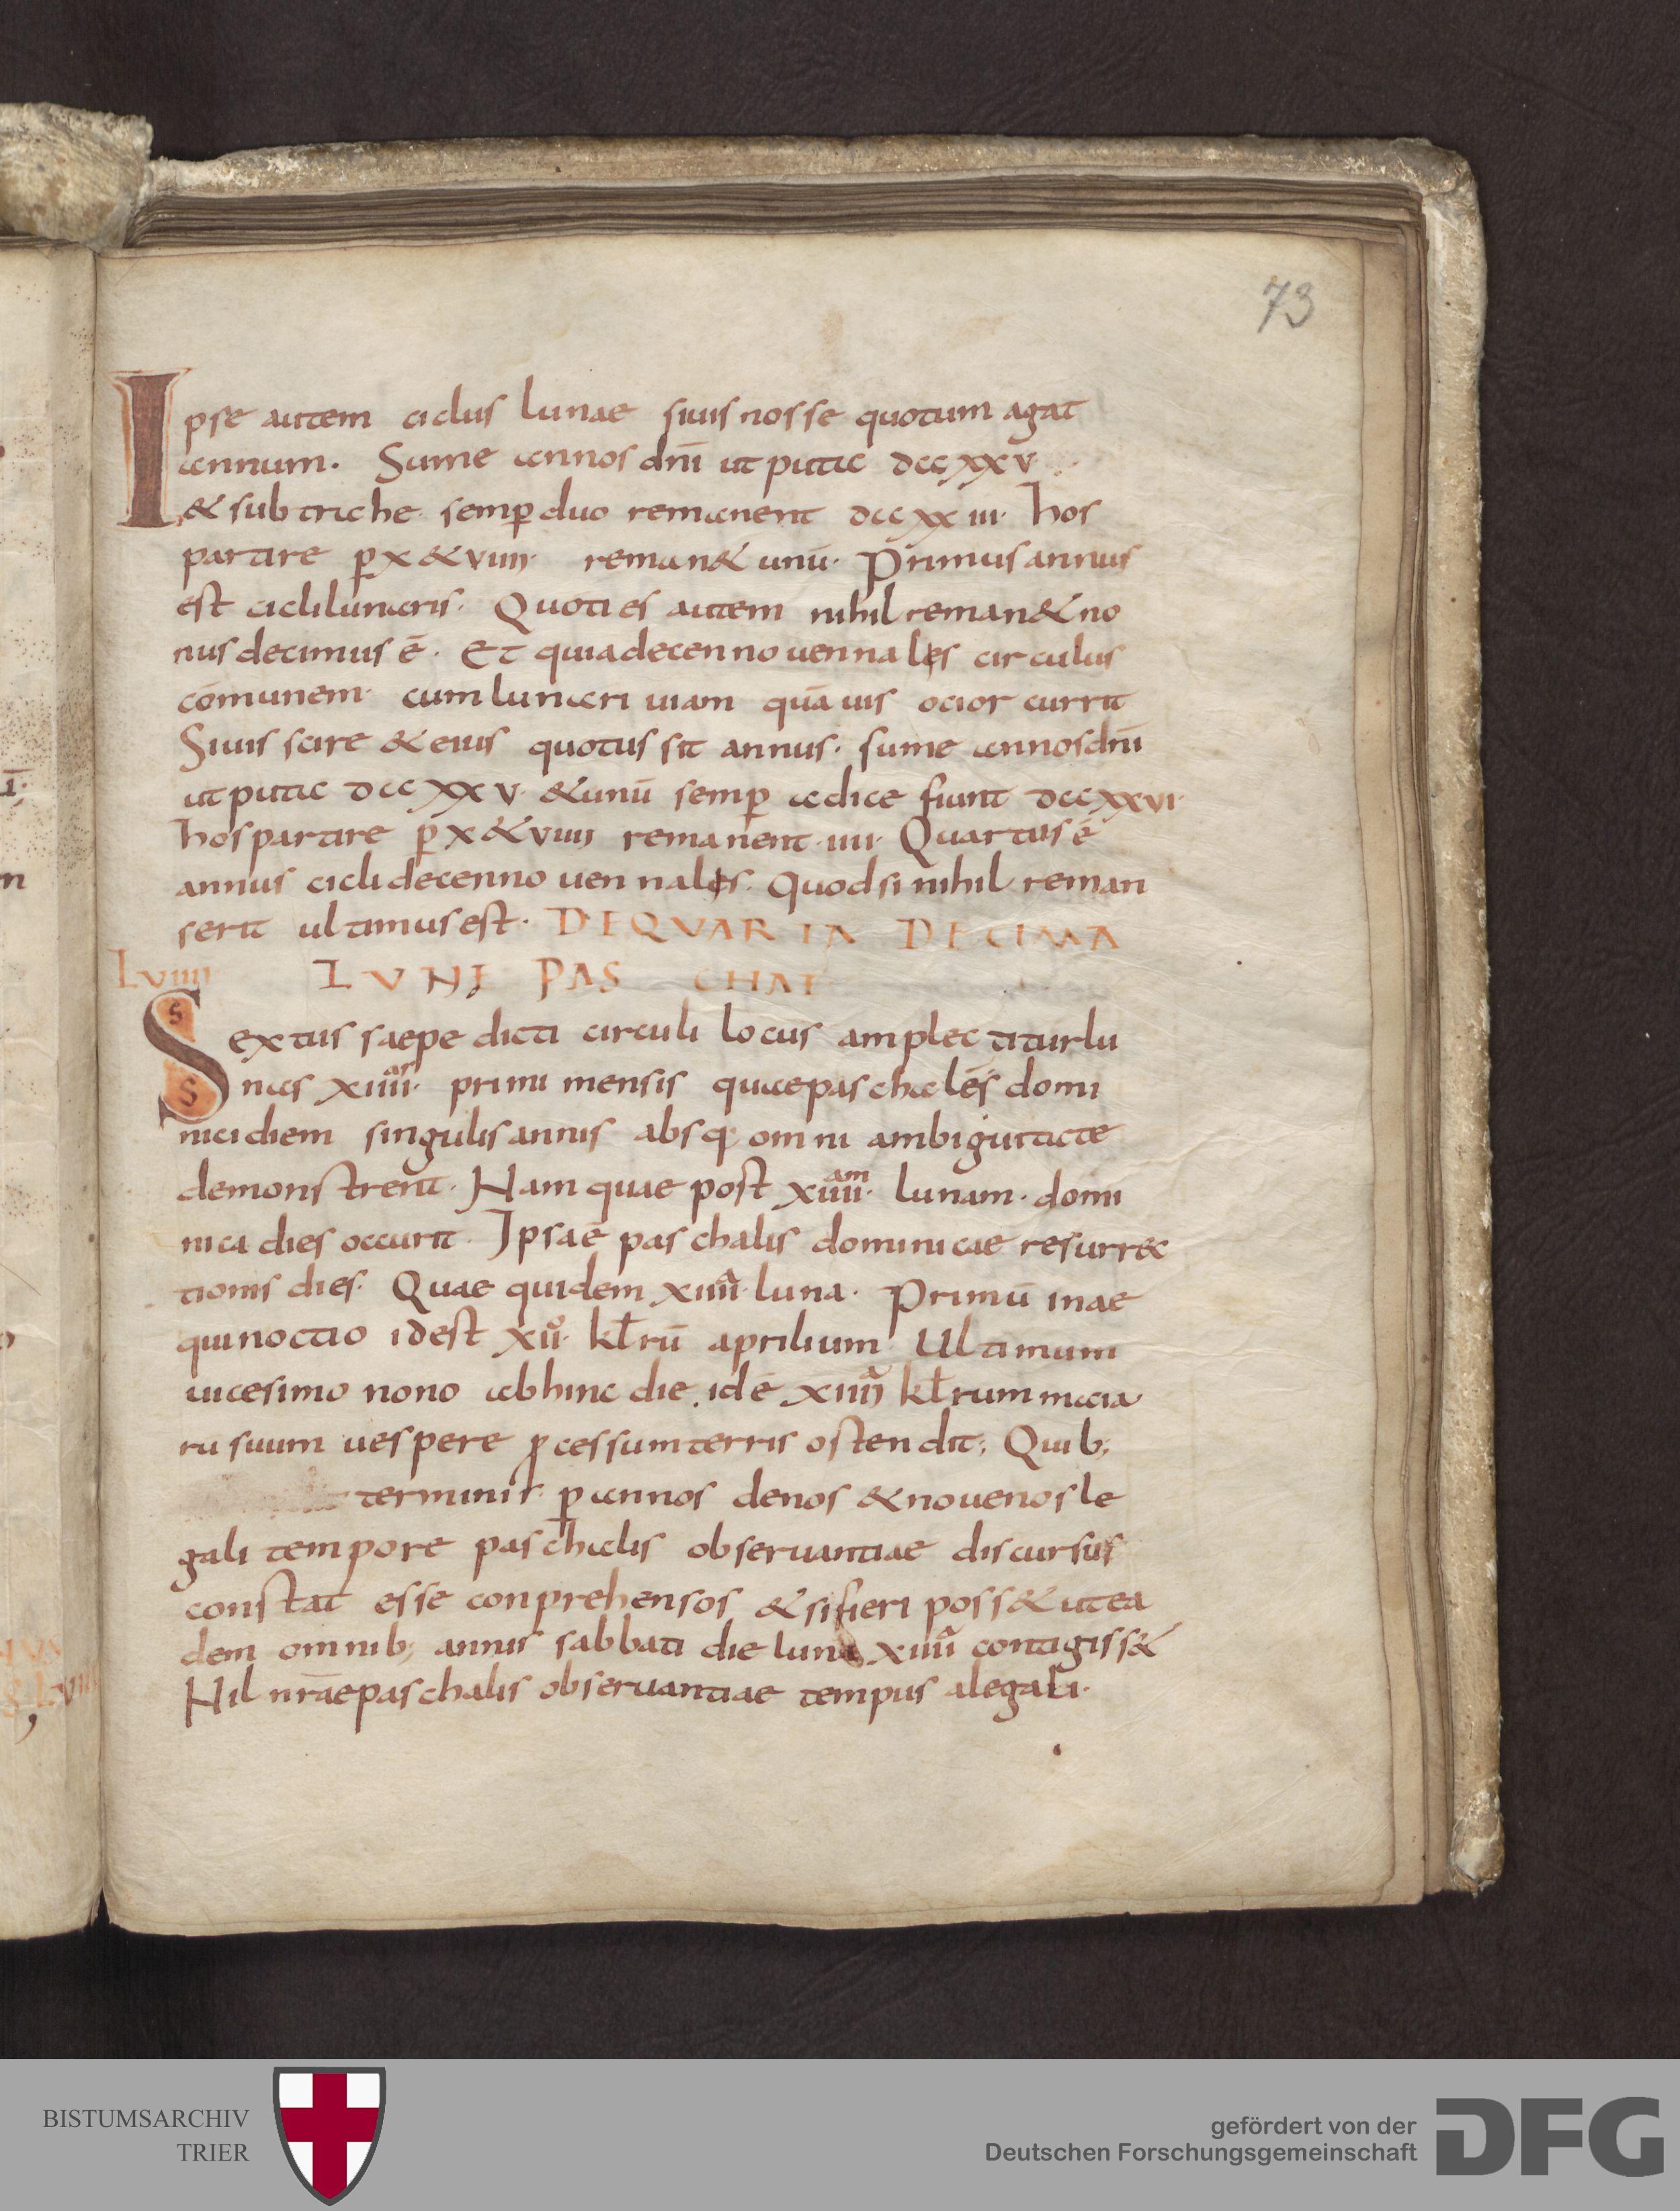 73
Ipse autem ciclus lunae siuis nosse quotum agat
annum. Sume annos dnī ut puta dccxxv
& subtrahe semp̱ duo remanent dccxxiii· hos
partire p̱ x & viiii· reman& unū· Primus annus
est cicli lunaris· Quoties autem nihil reman& no
nus decimus ē· Et quia decennouennales circulus
cōmunem· cum lunari uiam quāuis ocior currit
Siuis scire & eius quotus sit annus· sume annos dnī
ut puta dccxxv· & unū semp̱ adice fiunt dccxxvi·
hos partire p̱ x & viiii remanent· iiii· Quartus ē
annus cicli decennouennales· Quod si nihil reman
serit ultimus est· DE QUARTA DECIMA
Lviiii LUNE PASCHAE
Sextus saepe dicti circuli locus amplectitur lu
nas xiiiiᵃˢ· primi mensis quae paschales domi
nici diem singulis annis absq; omni ambiguitate
demonstrent· Nam quae post xiiiiᵃᵐ· lunam· domi
nica dies occurit· Ipsa ē paschalis dominicae resurrec
tionis dies· Quae quidem xiiiiᵃ· luna· Primū in ae
quinoctio id est xiiº· kł rū aprilium Ultimum
uicesimo nono ab hinc die id ē xiiiiᵃ kł rum maia
ru suum uespere ꝓcessum terris ostendit; Quib;
terminis p̱ annos denos & nouenos le
gali tempore paschalis obseruantiae discursus
constat esse conprehensos & si fieri poss& ut ea
dem omnib; annis sabbati die luna xiiiiᵃ contigiss&
Nil nr̄ae paschalis obseruantiae tempus a legali·
BISTUMSARCHIV
TRIER
gefördert von der
Deutschen Forschungsgemeinschaft
DFG